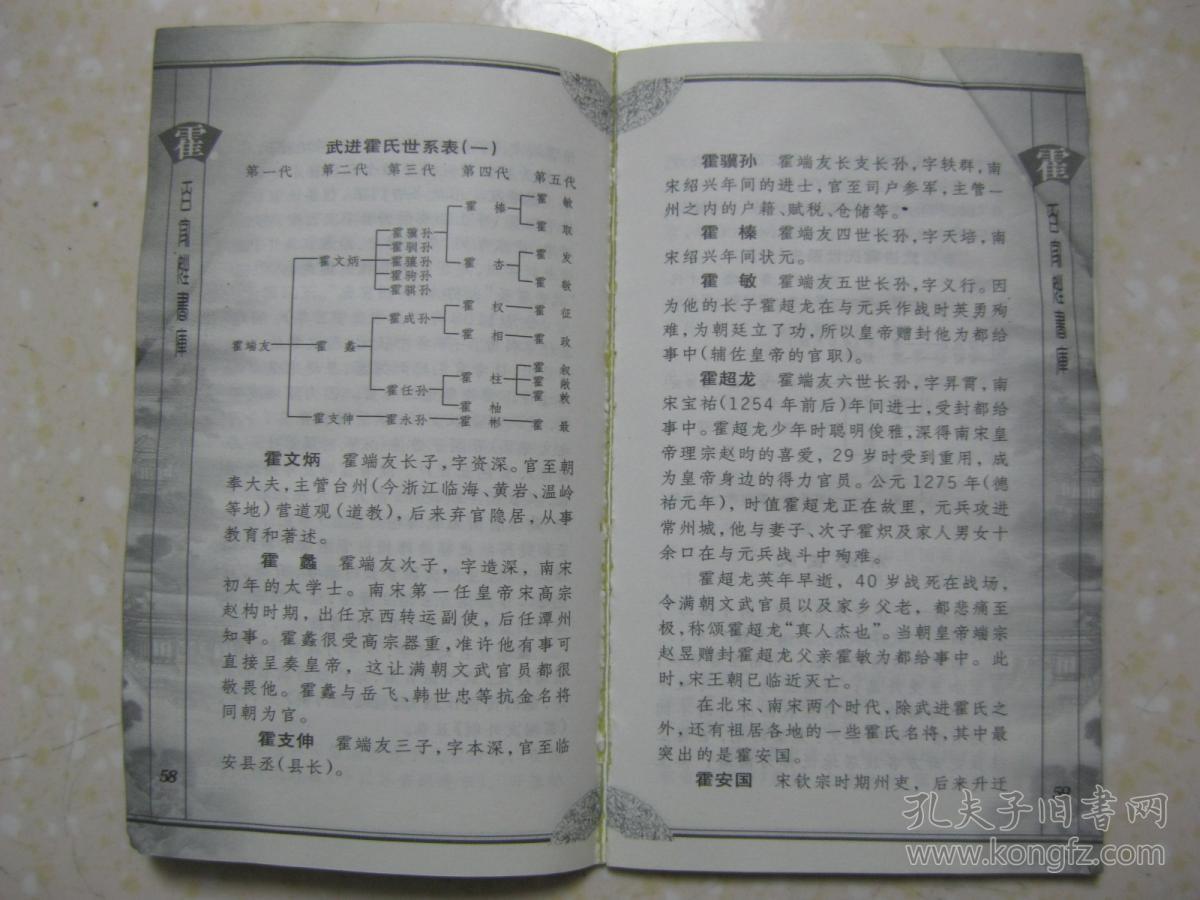 霍
百家姓書庫
武进霍氏世系表(一)
第一代 第二代 第三代 第四代 第五代
霍端友
霍文炳
霍蠡
霍支伸
霍骥孙
霍驯孙
霍骧孙
霍驹孙
霍骐孙
霍成孙
霍任孙
霍永孙
霍榛
霍杏
霍权
霍相
霍柱
霍柚
霍彬
霍敏
霍取
霍发
霍敏
霍征
霍政
霍叙
霍敞
霍敦
霍最
霍文炳 霍端友长子,字资深。官至朝
奉大夫,主管台州(今浙江临海、黄岩、温岭
等地)营道观(道教),后来弃官隐居,从事
教育和著述。
霍蠡 霍端友次子,字造深,南宋
初年的太学士。南宋第一任皇帝宋高宗
赵构时期,出任京西转运副使,后任潭州
知事。霍蠡很受高宗器重,准许他有事可
直接呈奏皇帝,这让满朝文武官员都很
敬畏他。霍蠡与岳飞、韩世忠等抗金名将
同朝为官。
霍支伸 霍端友三子,字本深,官至临
安县丞(县长)。
58
霍
百家姓書庫
霍骥孙 霍端友长支长孙,字轶群,南
宋绍兴年间的进士,官至司户参军,主管一
州之内的户籍、赋税、仓储等。
霍榛 霍端友四世长孙,字天培,南
宋绍兴年间状元。
霍敏 霍端友五世长孙,字义行。因
为他的长子霍超龙在与元兵作战时英勇殉
难,为朝廷立了功,所以皇帝赠封他为都给
事中(辅佐皇帝的官职)。
霍超龙 霍端友六世长孙,字昇霄,南
宋宝祐(1254年前后)年间进士,受封都给
事中。霍超龙少年时聪明俊雅,深得南宋皇
帝理宗赵昀的喜爱,29岁时受到重用,成
为皇帝身边的得力官员。公元1275年(德
祐元年),时值霍超龙正在故里,元兵攻进
常州城,他与妻子、次子霍炽及家人男女十
余口在与元兵战斗中殉难。
霍超龙英年早逝,40岁战死在战场,
令满朝文武官员以及家乡父老,都悲痛至
极,称颂霍超龙“真人杰也”。当朝皇帝端宗
赵昱赠封霍超龙父亲霍敏为都给事中。此
时,宋王朝已临近灭亡。
在北宋、南宋两个时代,除武进霍氏之
外,还有祖居各地的一些霍氏名将,其中最
突出的是霍安国。
霍安国 宋钦宗时期州吏,后来升迁
59
孔夫子旧书网
www.kongfz.com